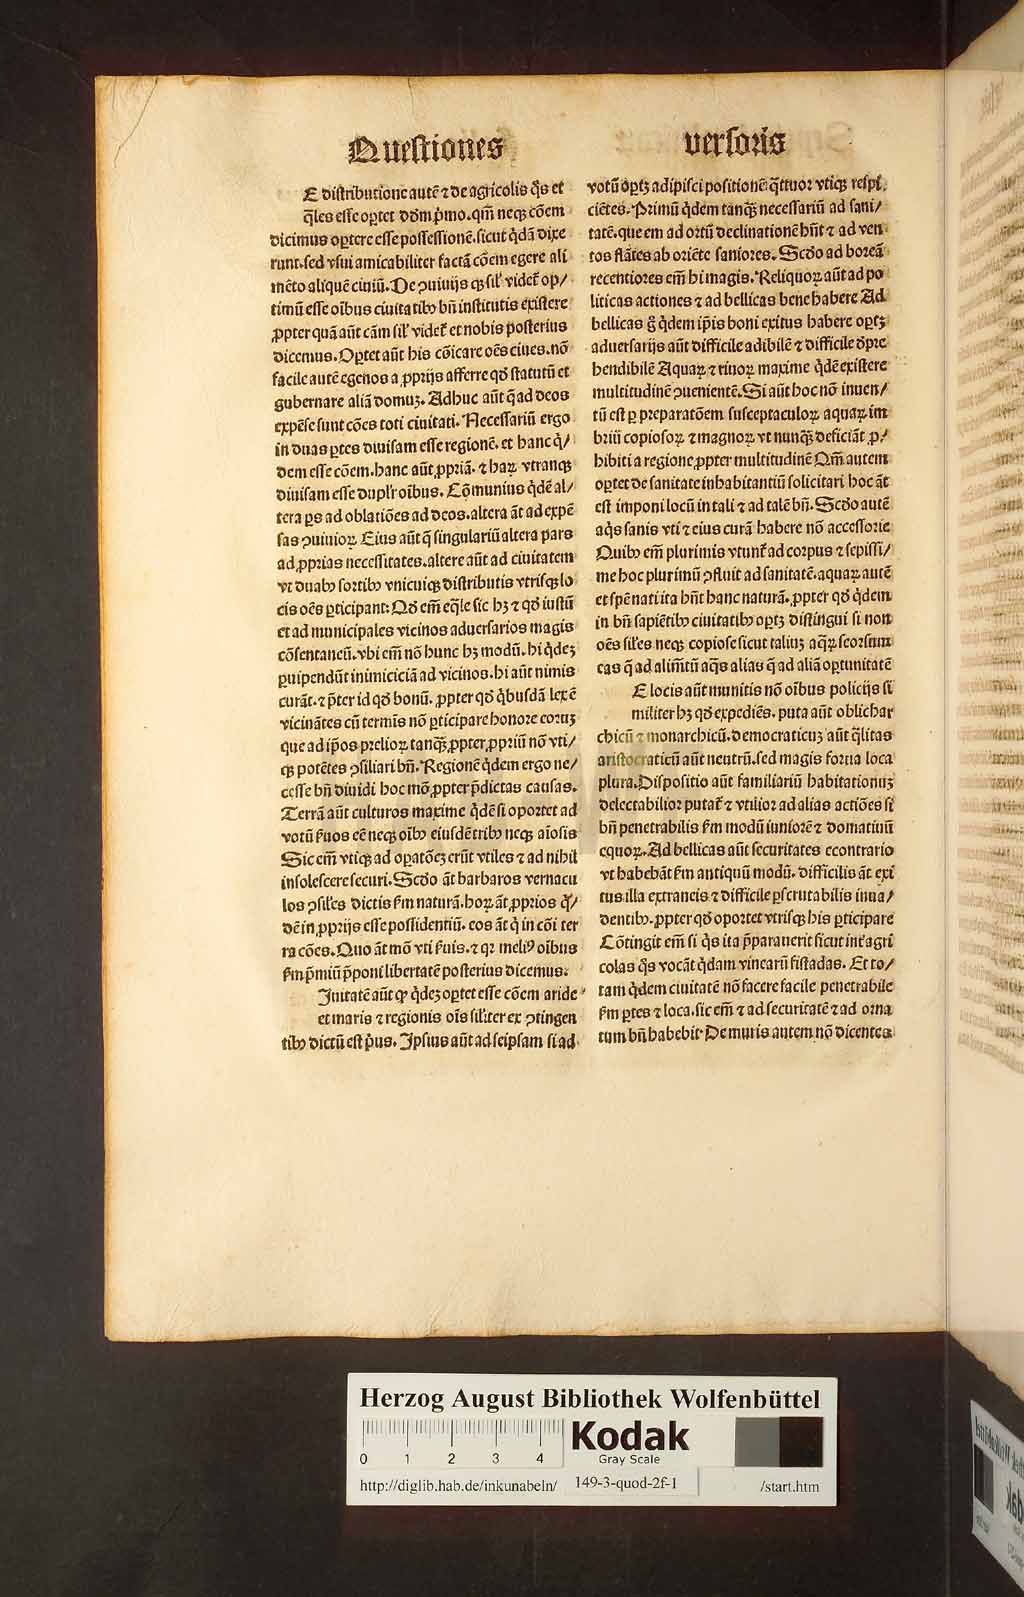 Questiones versoris
E distributione autē ⁊ de agricolis q̄s et
q̄les esse oꝑtet dōm p̄mo. qm̄ neqꝫ cōem
dicimus oꝑtere esse possessionē. sicut q̄dā dixe
runt. sed vsui amicabiliter factā cōem egere ali
mēto aliquē ciuiū. De ꝯuiuijs qꝫ sil' videt̄ op/
timū esse oībus ciuitatibꝰ bn̄ institutis existere
ꝓpter quā aūt cām sil' videt̄ et nobis posterius
dicemus. Oꝑtet aūt his cōicare oēs ciues. nō
facile autē egenos a ꝓprijs afferre qd̄ statutū et
gubernare aliā domuꝫ. Adhuc aūt q̄ ad deos
expēse sunt cōes toti ciuitati. Necessariū ergo
in duas ꝑtes diuisam esse regionē. et hanc q̄/
dem esse cōem. hanc aūt ꝓpriā. ⁊ haꝝ vtranqꝫ
diuisam esse dupl'r oībus. Cōmunius q̄dē al/
tera ꝑs ad oblatiōes ad deos. altera āt ad expē
sas ꝯuiuioꝝ. Eius aūt q̄ singulariū altera pars
ad ꝓprias necessitates. altere aūt ad ciuitatem
vt duabꝰ sortibꝰ vnicuiqꝫ distributis vtrisqꝫ lo
cis oēs ꝑticipant: Qd̄ em̄ eq̄le sic hꝫ ⁊ qd̄ iustū
et ad municipales vicinos aduersarios magis
cōsentaneū. vbi em̄ nō hunc hꝫ modū. hi q̄deꝫ
ꝑuipendūt inimiciciā ad vicinos. hi aūt nimis
curāt. ⁊ p̄ter id qd̄ bonū. ꝓpter qd̄ q̄busdā lex ē
vicināntes cū termīs nō ꝑticipare honore eoruꝫ
que ad ip̄os prelioꝝ tanqꝫ ꝓpter ꝓpriū nō vti/
qꝫ potētes ꝯsiliari bn̄. Regionē q̄dem ergo ne/
cesse bn̄ diuidi hoc mō ꝓpter p̄dictas causas.
Terrā aūt culturos maxime q̄dē si oportet ad
votū ẜuos eē neqꝫ oībꝰ eiusdē tribꝰ neqꝫ aīosis
Sic em̄ vtiqꝫ ad oꝑatōeꝫ erūt vtiles ⁊ ad nihil
insolescere securi. Scd̄o āt barbaros vernacu
los ꝯsil'es dictis ẜm naturā. hoꝝ āt ꝓprios q̄/
dē in ꝓprijs esse possidentiū. cos āt q̄ in cōi ter
ra cōes. Quo āt mō vti ẜuis. ⁊ qꝛ meliꝰ oībus
ẜm p̄miū p̄poni libertatē posterius dicemus.
Iuitatē aūt qꝫ q̄deꝫ oꝑtet esse cōem aride
et maris ⁊ regionis oīs sil'iter ex ꝯtingen
tibꝰ dictū est p̄us. Ipsius aūt ad seipsam si ad
votū oꝑtꝫ adipisci positionē q̄ttuor vtiqꝫ respi
ciētes. Primū q̄dem tanqꝫ necessariū ad sani/
tatē. que em ad ortū declinationē hn̄t ⁊ ad ven
tos flātes ab oriēte saniores. Scd̄o ad boreā
recentiores em̄ hi magis. Reliquoꝝ aūt ad po
liticas actiones ⁊ ad bellicas bene habere Ad
bellicas g̊ q̄dem ip̄is boni exitus habere oꝑtꝫ
aduersarijs aūt difficile adibilē ⁊ difficile ꝯpre
hendibilē Aquaꝝ ⁊ riuoꝝ maxime q̄dē existere
multitudinē ꝯuenientē. Si aūt hoc nō inuen/
tū est ꝑ preparatōem susceptaculoꝝ aquaꝝ im
briū copiosoꝝ ⁊ magnoꝝ vt nunqꝫ deficiāt ꝓ/
hibiti a regione ꝓpter multitudinē Qm̄ autem
oꝑtet de sanitate inhabitantiū solicitari hoc āt
est imponi locū in tali ⁊ ad talē bn̄. Scd̄o autē
aq̄s sanis vti ⁊ eius curā habere nō accessorie
Quibꝰ em̄ plurimis vtunt̄ ad corpus ⁊ sepissi/
me hoc plurimū ꝯfluit ad sanitatē. aquaꝝ autē
et spē nati ita hn̄t hanc naturā. ꝓpter qd̄ q̄dem
in bn̄ sapiētibꝰ ciuitatibꝰ oꝑtꝫ distingui si non
oēs sil'es neqꝫ copiose sicut taliuꝫ aq̄ꝝ seorsum
eas q̄ ad alim̄tū aq̄s alias q̄ ad aliā oꝑtunitatē
E locis aūt munitis nō oībus policijs si
militer hꝫ qd̄ expediēs. puta aūt oblichar
chicū ⁊ monarchicū. democraticuꝫ aūt q̄litas
aristocraticū aūt neutrū. sed magis fortia loca
plura. Dispositio aūt familiariū habitationuꝫ
delectabilior putat̄ ⁊ vtilior ad alias actiōes si
bn̄ penetrabilis ẜm modū iuniorē ⁊ domatiuū
equoꝝ. Ad bellicas aūt securitates econtrario
vt habebāt ẜm antiquū modū. difficilis āt exi
tus. illa extraneis ⁊ difficile ꝑscrutabilis inua/
dentibꝰ. ꝓpter qd̄ oportet vtrisqꝫ his ꝑticipare
Cōtingit em̄ si q̄s ita p̄parauerit sicut int' agri
colas q̄s vocāt q̄dam vinearū fistadas. Et to/
tam q̄dem ciuitatē nō facere facile penetrabile
ẜm ꝑtes ⁊ loca. sic em̄ ⁊ ad securitatē ⁊ ad orna
tum bn̄ habebit De muris autem nō dicentes
Herzog August Bibliothek Wolfenbüttel
0 1 2 3 4
Kodak
Gray Scale
http://diglib.hab.de/inkunabeln/ 149-3-quod-2f-1 /start.htm